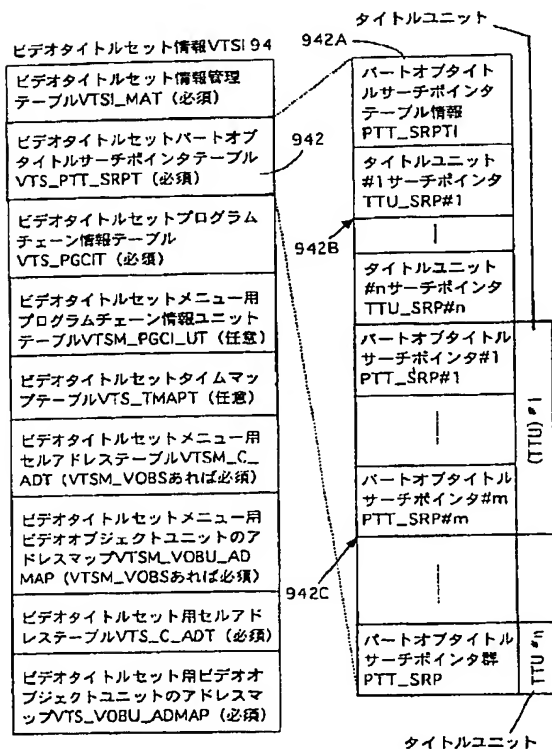 ビデオタイトルセット情報VTSI 94
ビデオタイトルセット情報管理
テーブルVTSI_MAT（必須）
ビデオタイトルセットパートオブ
タイトルサーチポインタテーブル
VTS_PTT_SRPT（必須）
ビデオタイトルセットプログラム
チェーン情報テーブル
VTS_PGCIT（必須）
ビデオタイトルセットメニュー用
プログラムチェーン情報ユニット
テーブルVTSM_PGCI_UT（任意）
ビデオタイトルセットタイムマッ
プテーブルVTS_TMAPT（任意）
ビデオタイトルセットメニュー用
セルアドレステーブルVTSM_C_
ADT（VTSM_VOBSあれば必須）
ビデオタイトルセットメニュー用
ビデオオブジェクトユニットのア
ドレスマップVTSM_VOBU_AD
MAP（VTSM_VOBSあれば必須）
ビデオタイトルセット用セルアド
レステーブルVTS_C_ADT（必須）
ビデオタイトルセット用ビデオオ
ブジェクトユニットのアドレスマ
ップVTS_VOBU_ADMAP（必須）
942
942A
942B
942C
タイトルユニット
パートオブタイト
ルサーチポインタ
テーブル情報
PTT_SRPTI
タイトルユニット
#1サーチポインタ
TTU_SRP#1
タイトルユニット
#nサーチポインタ
TTU_SRP#n
パートオブタイトル
サーチポインタ#1
PTT_SRP#1
パートオブタイトル
サーチポインタ#m
PTT_SRP#m
パートオブタイトル
サーチポインタ群
PTT_SRP
(TTU) #1
TTU #n
タイトルユニット